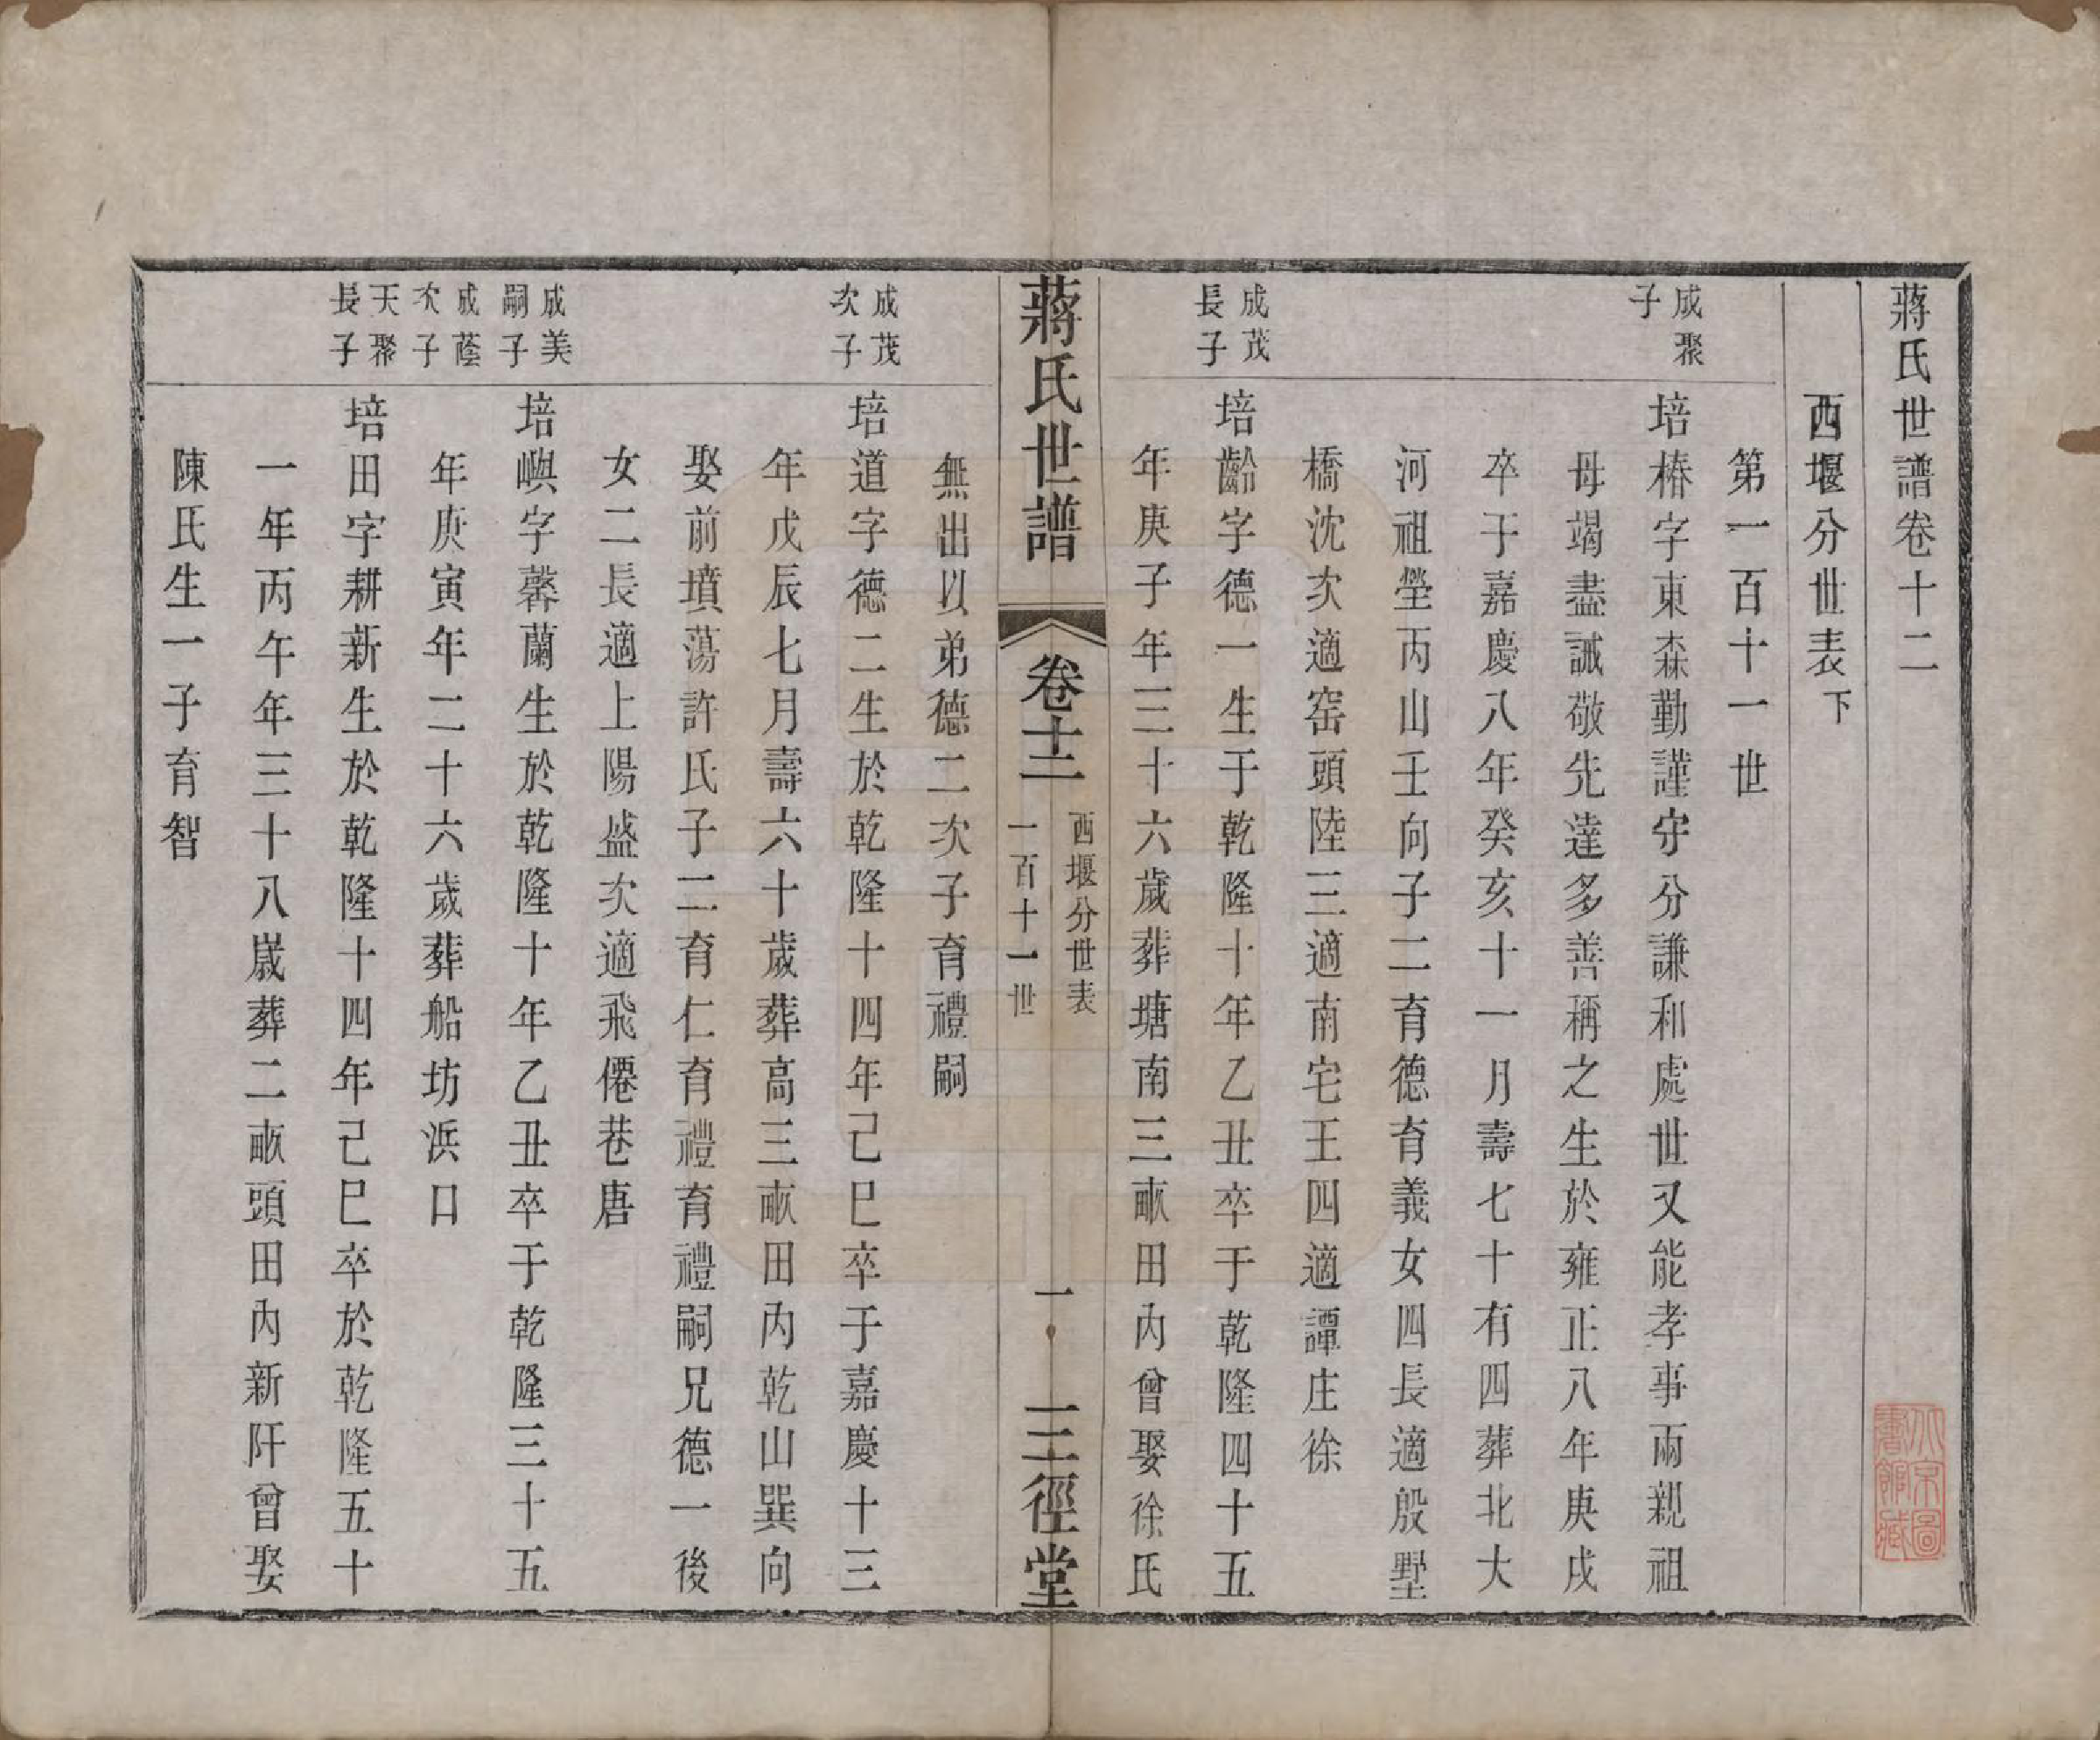 蔣氏世譜卷十二
西堰分世表下
第一百十一世
成聚
子
培椿字東森勤謹守分謙和處世又能孝事兩親祖
母竭盡誠敬先達多善稱之生於雍正八年庚戌
卒于嘉慶八年癸亥十一月壽七十有四葬北大
河祖塋丙山壬向子二育德育義女四長適殷墅
橋沈次適窑頭陸三適南宅王四適譚庄徐
成茂
長子
培齡字德一生于乾隆十年乙丑卒于乾隆四十五
年庚子年三十六歲葬塘南三畝田內曾娶徐氏
蔣氏世譜
卷十二
西堰分世表
一百十一世
一
三徑堂
無出以弟德二次子育禮嗣
成茂
次子
培道字德二生於乾隆十四年己巳卒于嘉慶十三
年戊辰七月壽六十歲葬高三畝田內乾山巽向
娶前墳蕩許氏子二育仁育禮育禮嗣兄德一後
女二長適上陽盛次適飛僊巷唐
成美
嗣子
培嶼字馨蘭生於乾隆十年乙丑卒于乾隆三十五
成蔭
次子
年庚寅年二十六歲葬船坊浜口
天聚
長子
培田字耕新生於乾隆十四年己巳卒於乾隆五十
一年丙午年三十八歲葬二畝頭田內新阡曾娶
陳氏生一子育智
大京圖
書館藏